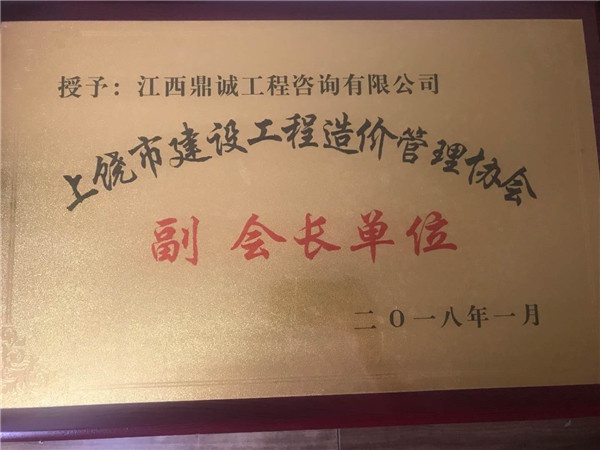 授予：江西鼎诚工程咨询有限公司
上饶市建设工程造价管理协会
副 会长单位
二〇一八年一月